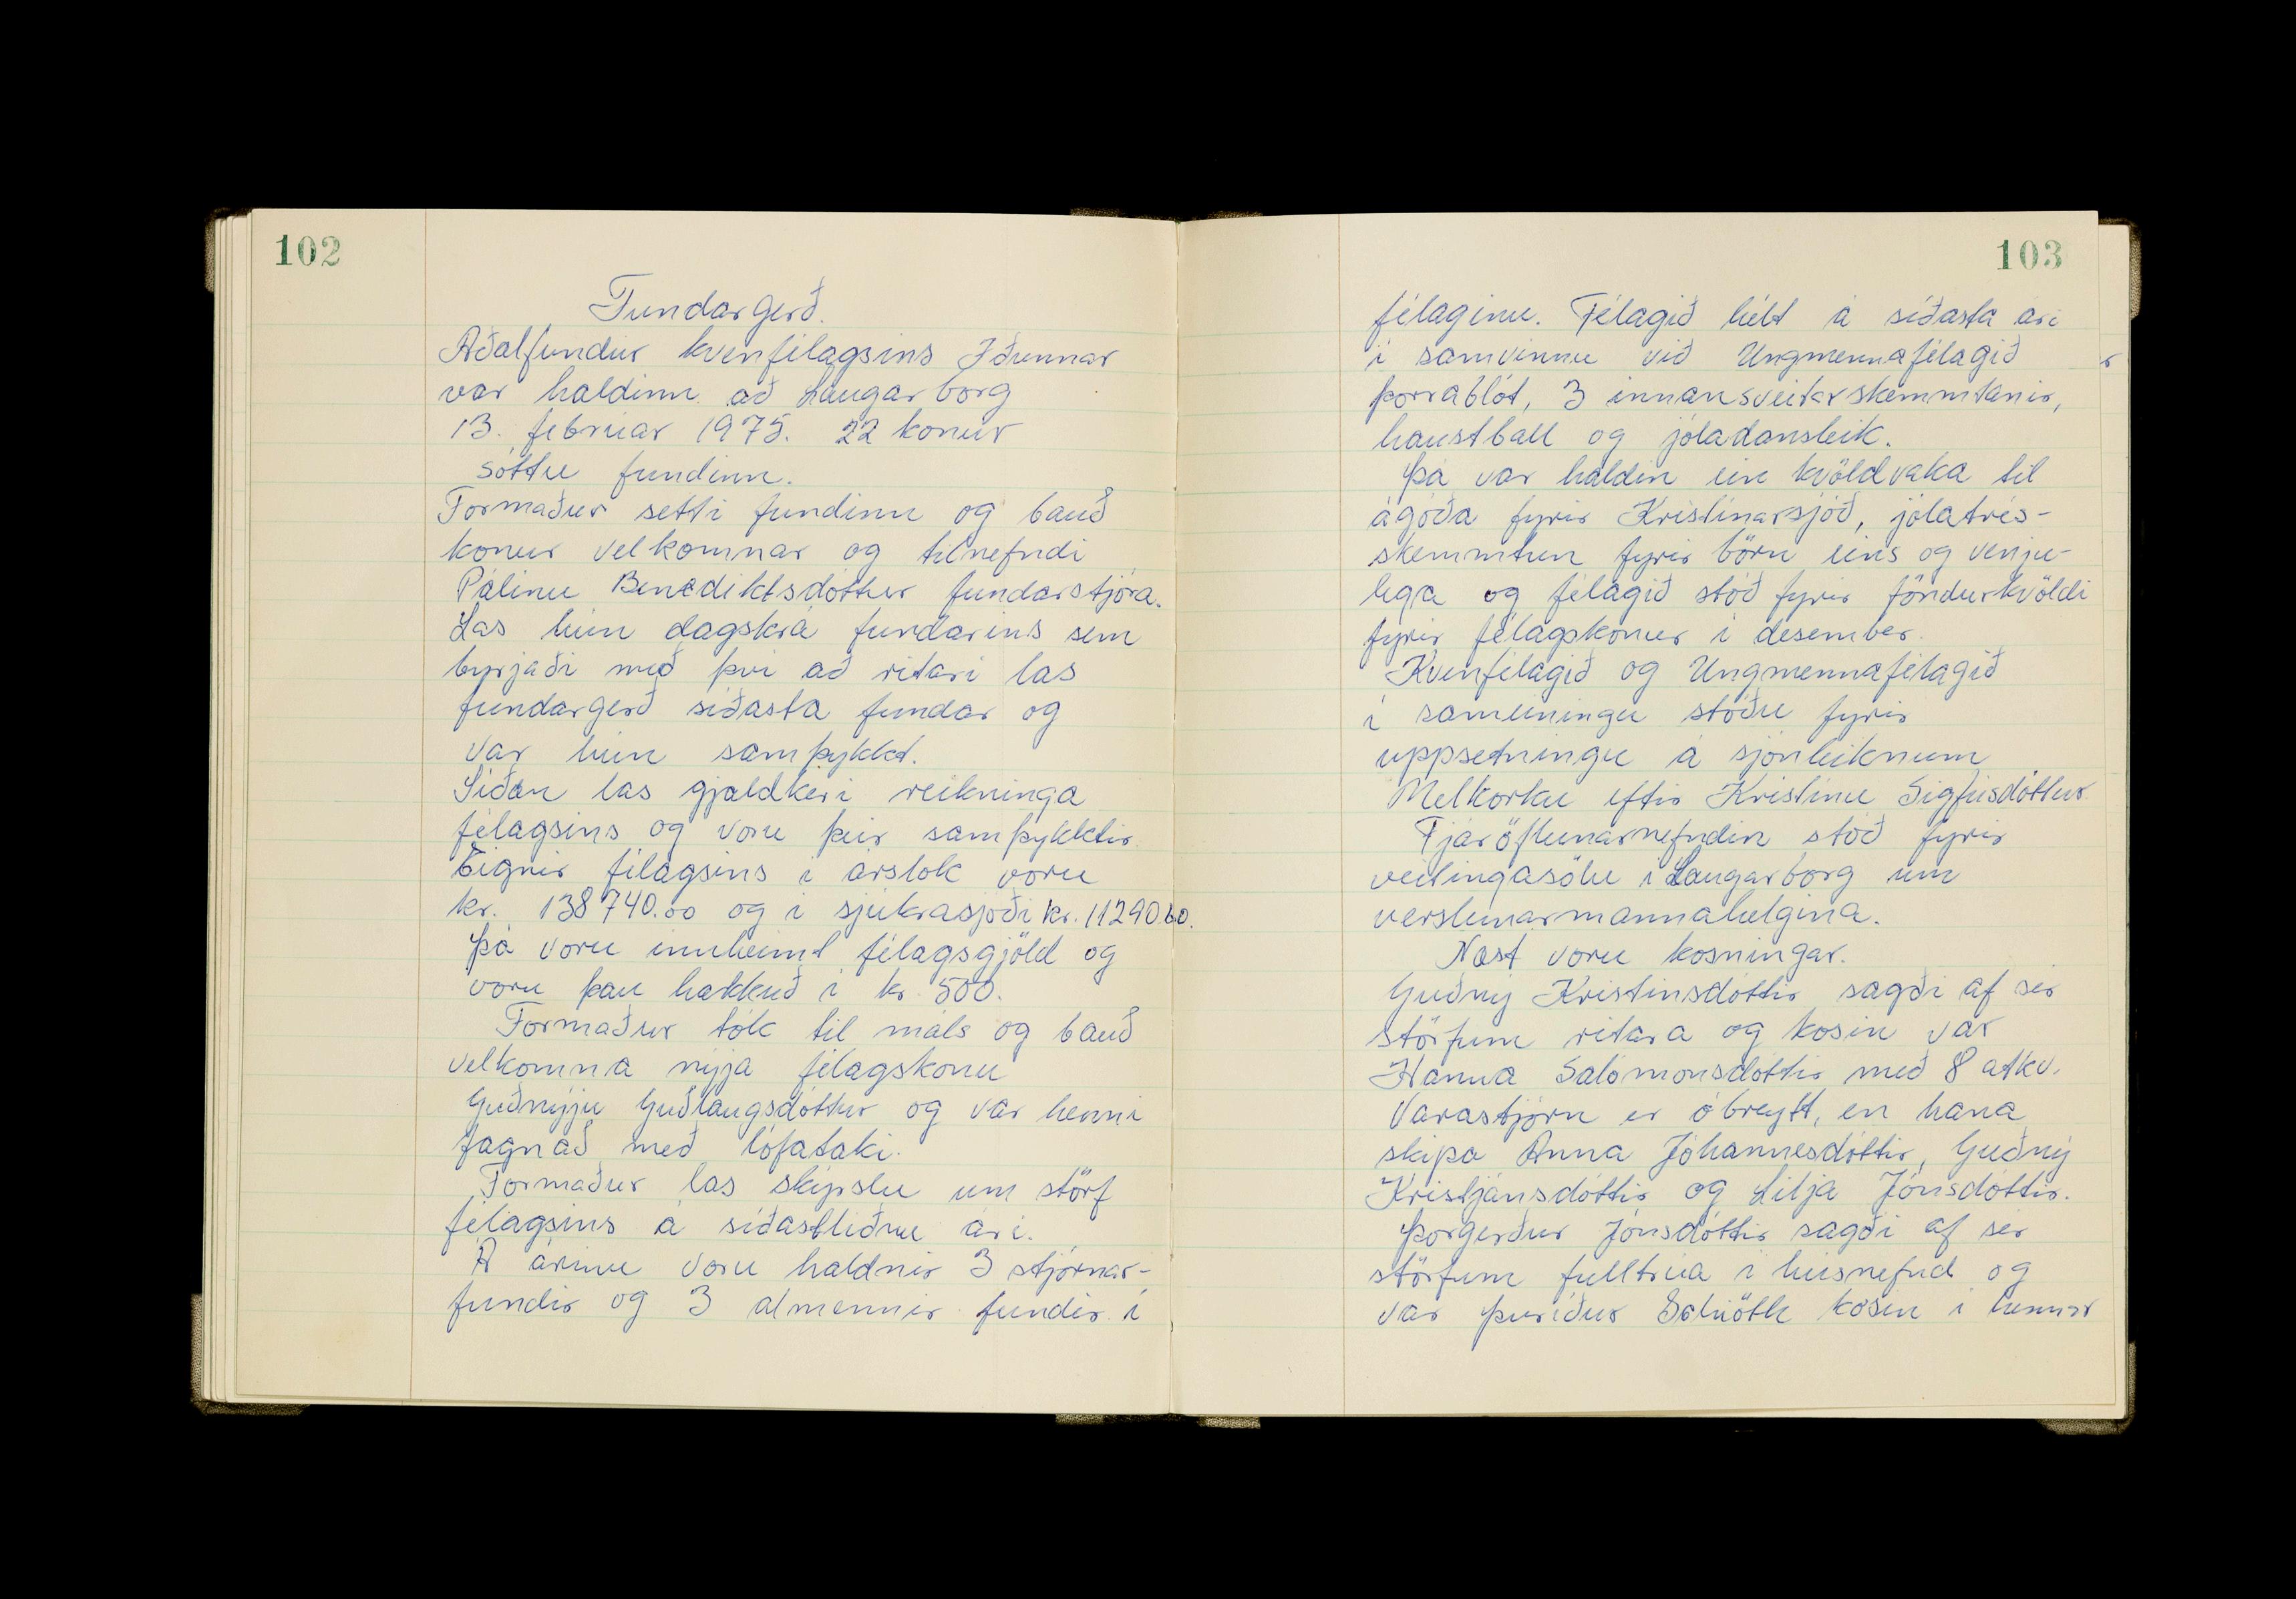 102
Fundargerð.
Aðalfundur kvenfélagsins Iðunnar
var haldinn að Laugarborg
13. febrúar 1975. 22 konur
sóttu fundinn.
Formaður setti fundinn og bauð
konur velkomnar og tilnefndi
Pálínu Benediktsdóttur fundarstjóra.
Las hún dagskrá fundarins sem
byrjaði með því að ritari las
fundargerð síðasta fundar og
var hún samþykkt.
Síðan las gjaldkeri reikninga
félagsins og voru þeir samþykktir
Eignir félagsins í árslok voru
kr. 138740.00 og í sjúkrasjóði kr. 11290.60.
Þá voru innheimt félagsgjöld og
voru þau hækkuð í kr. 500.
Formaður tók til máls og bauð
velkomna nýja félagskonu
Guðnýju Guðlaugsdóttur og var henni
fagnað með lófataki.
Formaður las skýrslu um störf
félagsins á síðastliðnu ári.
Á árinu voru haldnir 3 stjórnar-
fundir og 3 almennir fundir í
103
félaginu. Félagið hélt á síðasta ári
í samvinnu við Ungmennafélagið
þorrablót, 3 innansveitarskemmtanir,
haustball og jóladansleik.
Þá var haldin ein kvöldvaka til
ágóða fyrir Kristínarsjóð, jólatrés-
skemmtun fyrir börn eins og venju-
lega og félagið stóð fyrir föndurkvöldi
fyrir félagskonur í desember.
Kvenfélagið og Ungmennafélagið
í sameiningu stóðu fyrir
uppsetningu á sjónleiknum
Melkorku eftir Kristínu Sigfúsdóttur
Fjáröflunarnefndin stóð fyrir
veitingasölu í Laugarborg um
verslunarmannahelgina.
Næst voru kosningar.
Guðný Kristinsdóttir sagði af sér
störfum ritara og kosin var
Hanna Salómonsdóttir með 8 atkv.
Varastjórn er óbreytt, en hana
skipa Anna Jóhannesdóttir, Guðný
Kristjánsdóttir og Lilja Jónsdóttir.
Þorgerður Jónsdóttir sagði af sér
störfum fulltrúa í húsnefnd og
var Þuríður Schiöth kosin í hennar